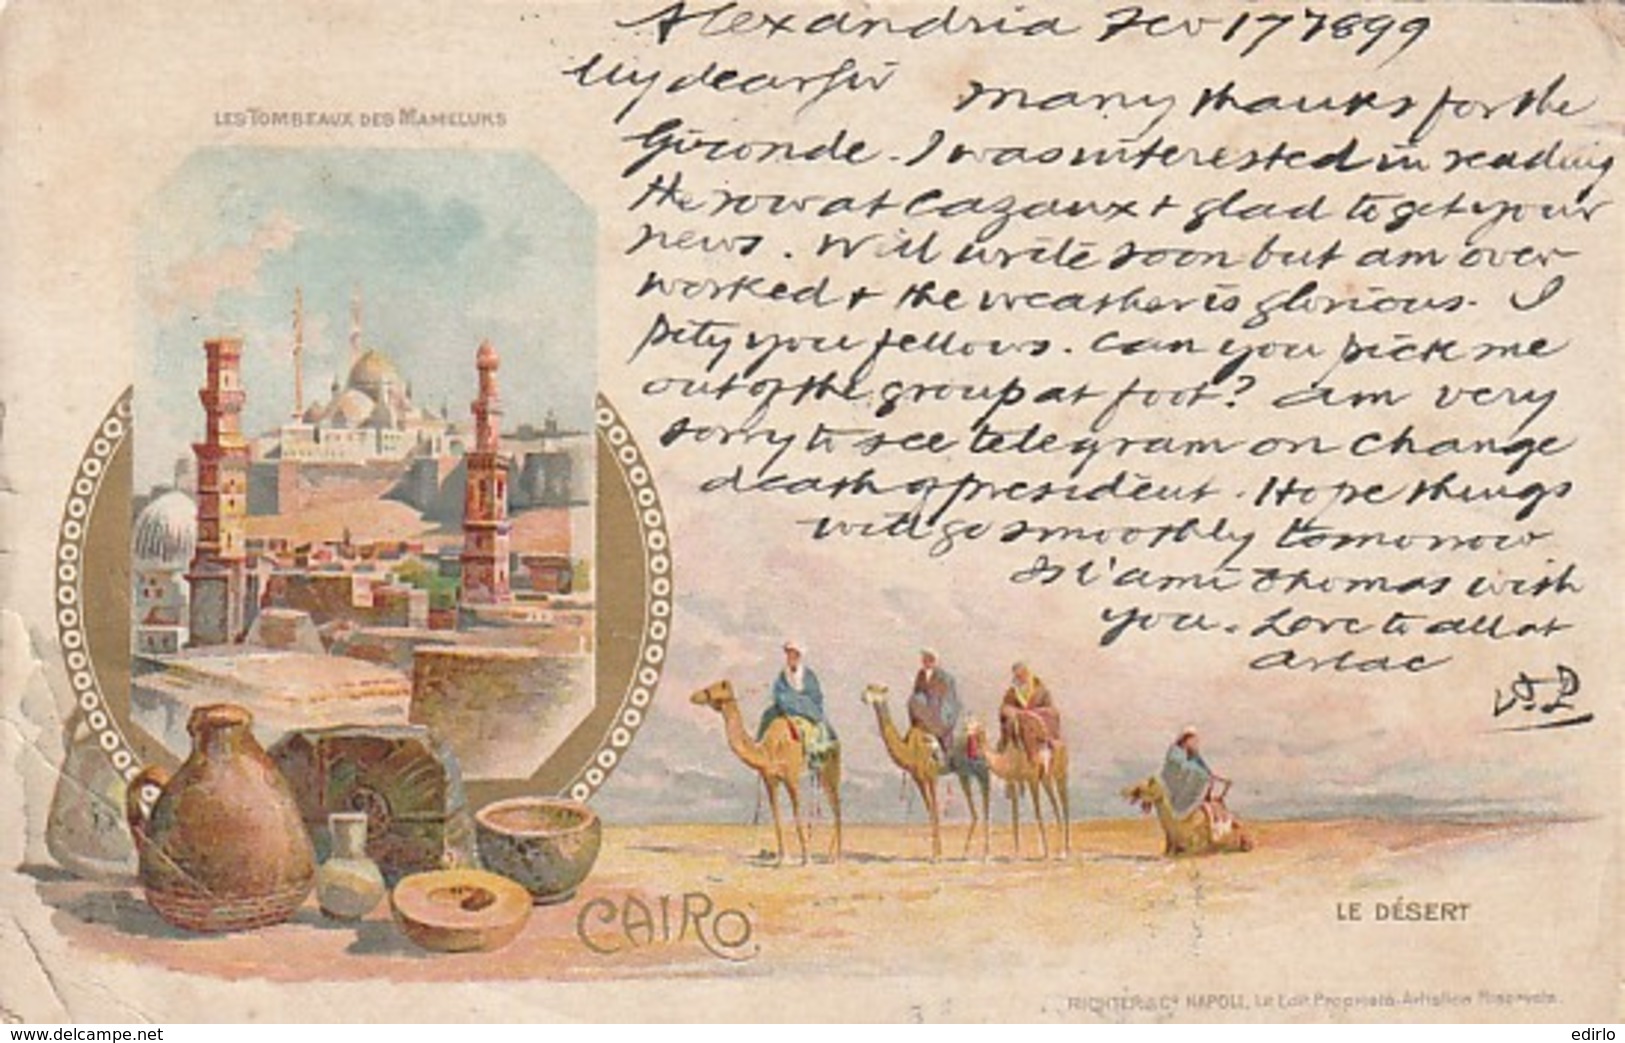 Alexandria Fev 17 1899
My dear Sir
many thanks for the
Gironde. I was interested in reading
the row at Cazaux + glad to get your
news. Will write soon but am over
worked + the weather is glorious. I
pity you fellows. Can you pick me
out of the group at foot? am very
sorry to see telegram on change
death of president. Hope things
will go smoothly tomorrow
Is l'ami Thomas with
you. Love to all at
LES TOMBEAUX DES MAMELUKS
CAIRO.
LE DÉSERT
RICHTER & Co NAPOLI, Lit. Edit. Proprietà Artistica Riservata.
www.delcampe.net
edirlo